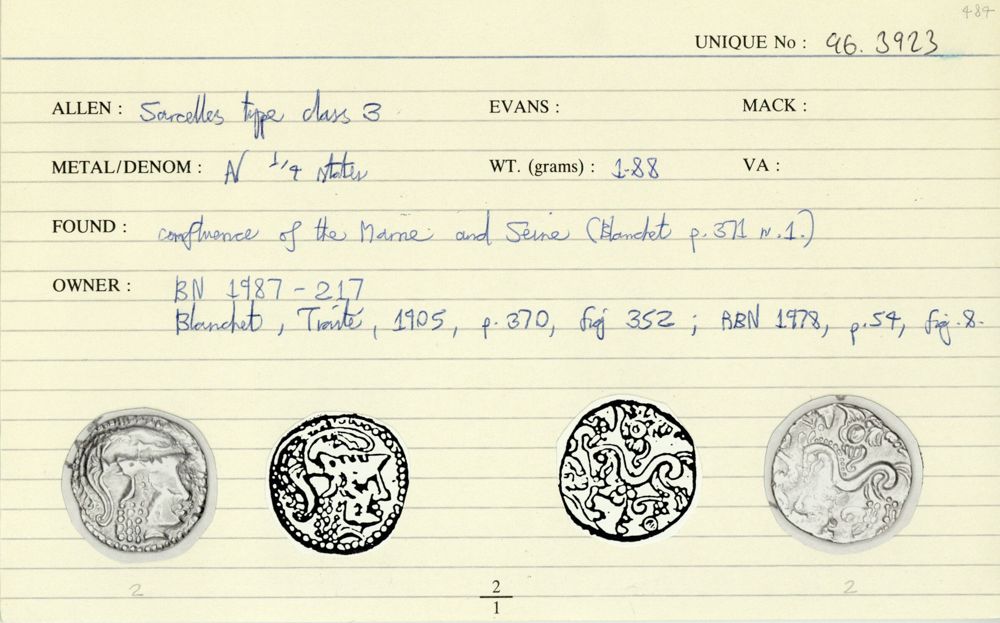 484
UNIQUE No : 96. 3923
ALLEN : Sarcelles type class 3 EVANS : MACK :
METAL/DENOM : N 1/4 stater WT. (grams) : 1.88 VA :
FOUND : confluence of the Marne and Seine (Blanchet p. 371 n. 1.)
OWNER : BN 1987 - 217
Blanchet, Traité, 1905, p. 370, fig 352 ; RBN 1978, p. 54, fig. 8.
2 2/1 2